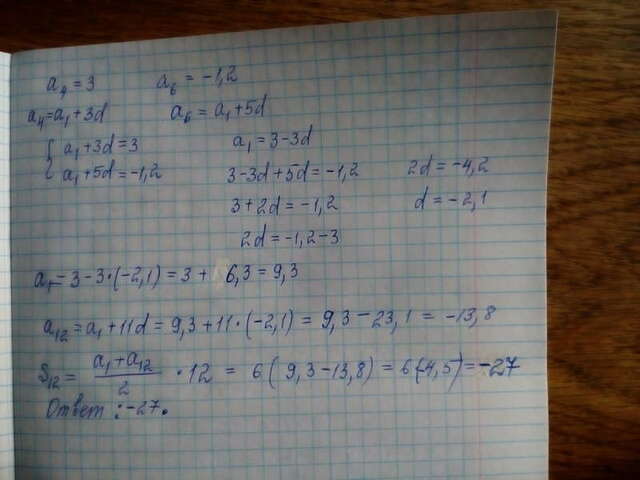 a₄ = 3 a₆ = -1,2
a₄ = a₁ + 3d a₆ = a₁ + 5d
{ a₁ + 3d = 3 a₁ = 3 - 3d
a₁ + 5d = -1,2 3 - 3d + 5d = -1,2 2d = -4,2
3 + 2d = -1,2 d = -2,1
2d = -1,2 - 3
a₁ = 3 - 3·(-2,1) = 3 + 6,3 = 9,3
a₁₂ = a₁ + 11d = 9,3 + 11·(-2,1) = 9,3 - 23,1 = -13,8
S₁₂ = (a₁ + a₁₂)/2 · 12 = 6(9,3 - 13,8) = 6(-4,5) = -27
Ответ: -27.